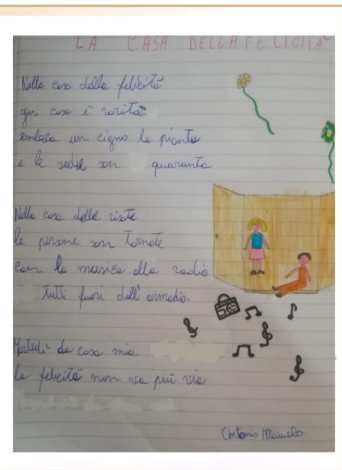 LA CASA DELLA FELICITA'
Nella casa della felicità
ogni cosa è rarità
un cigno la pianta
e le sedie son quaranta
Nella casa delle risate
le persone son tornate
con la musica alla radio
tutti fuori dall'armadio.
Martedì da casa mia
la felicità non va più via
Antonio